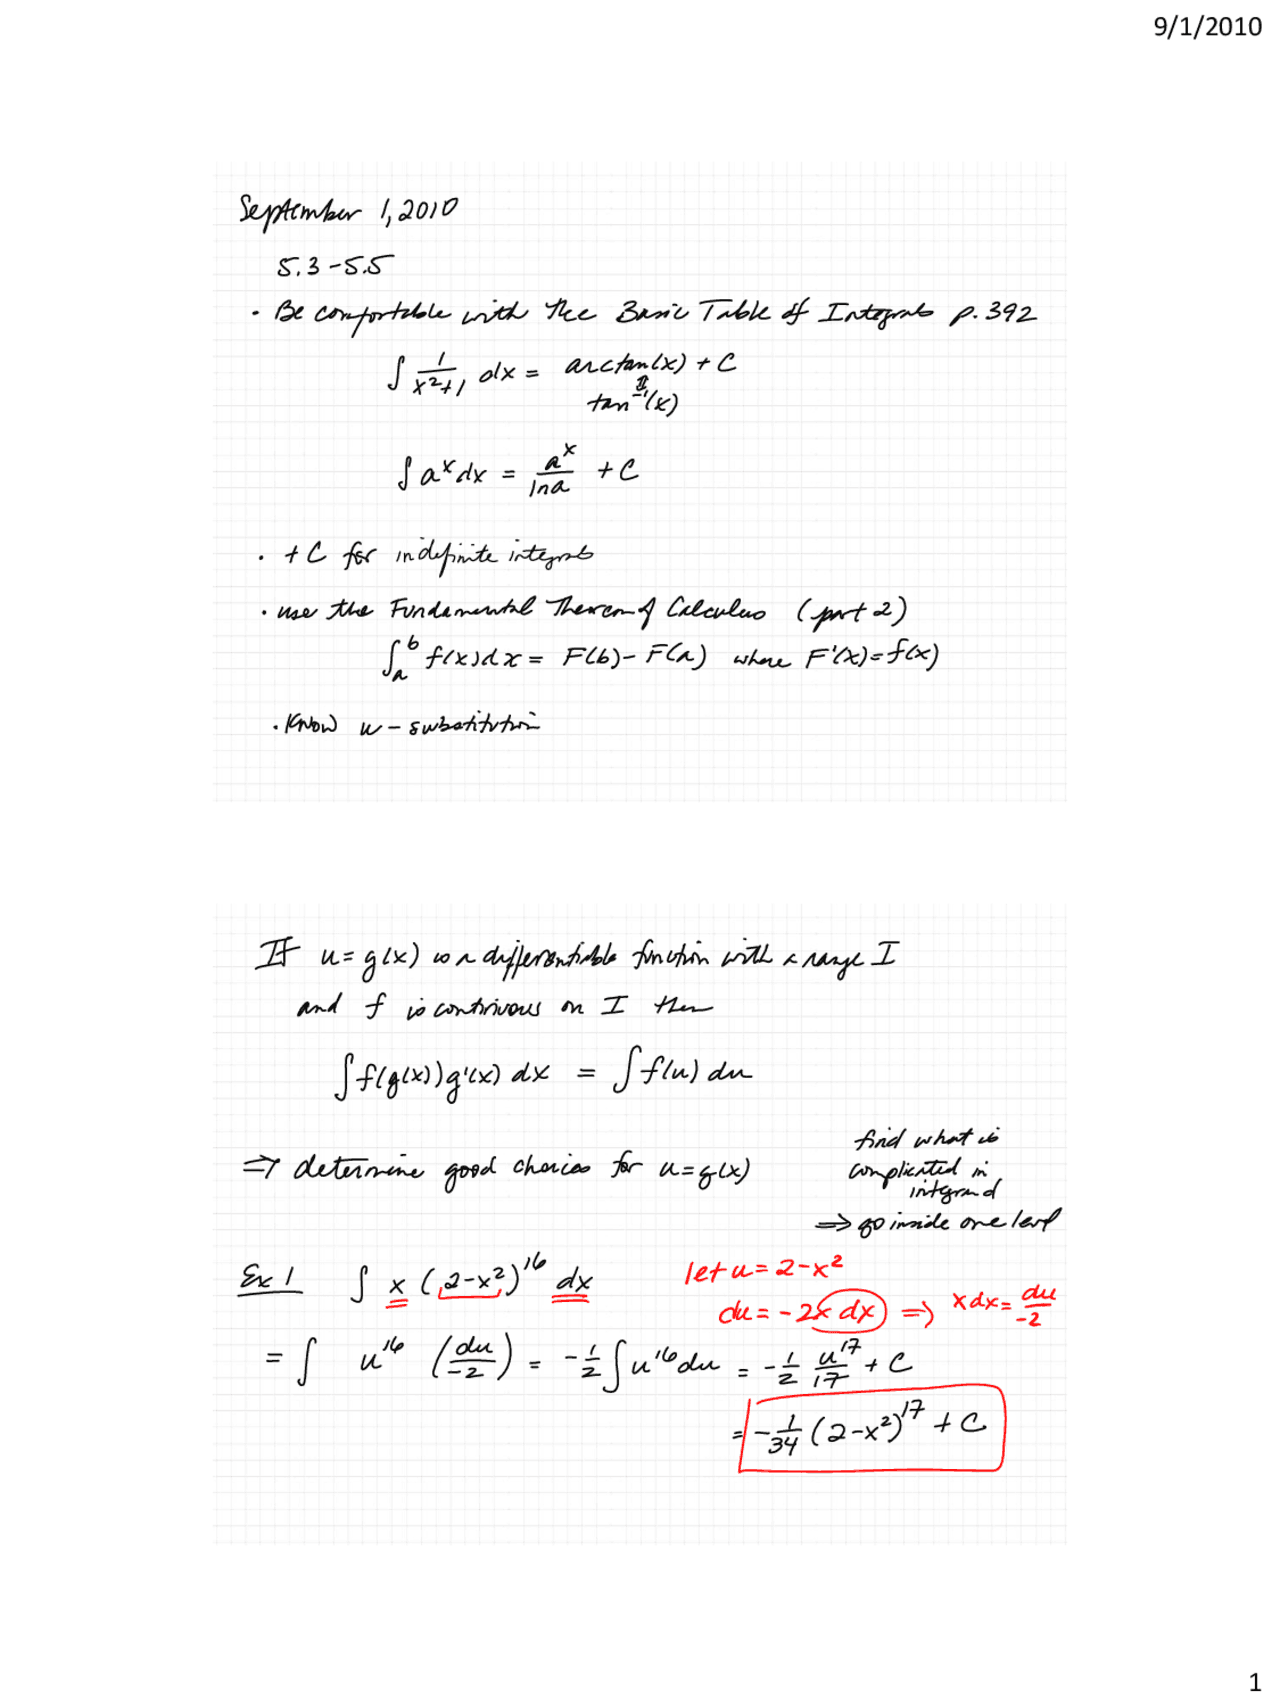 9/1/2010
September 1, 2010
5.3 - 5.5
• Be comfortable with the Basic Table of Integrals p. 392
∫ 1/(x²+1) dx = arctan(x) + C
tan⁻¹(x)
∫ aˣ dx = aˣ/ln a + C
• + C for indefinite integrals
• use the Fundamental Theorem of Calculus (part 2)
∫ₐᵇ f(x)dx = F(b) - F(a) where F'(x) = f(x)
• Know u - substitution
If u = g(x) is a differentiable function with a range I
and f is continuous on I then
∫ f(g(x)) g'(x) dx = ∫ f(u) du
⇒ determine good choices for u = g(x)
find what is
complicated in
integrand
⇒ go inside one level
Ex 1 ∫ x (2-x²)¹⁶ dx
let u = 2-x²
du = -2x dx ⇒ x dx = du/-2
= ∫ u¹⁶ (du/-2) = -1/2 ∫ u¹⁶ du = -1/2 u¹⁷/17 + C
= -1/34 (2-x²)¹⁷ + C
1